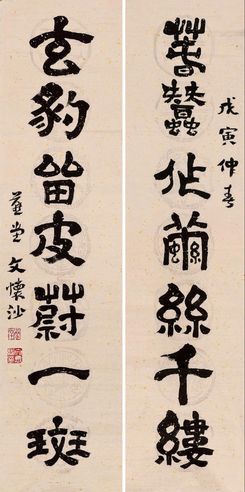 萅蠶作繭絲千縷
戊寅仲春
玄豹留皮蔚一斑
燕堂 文懷沙